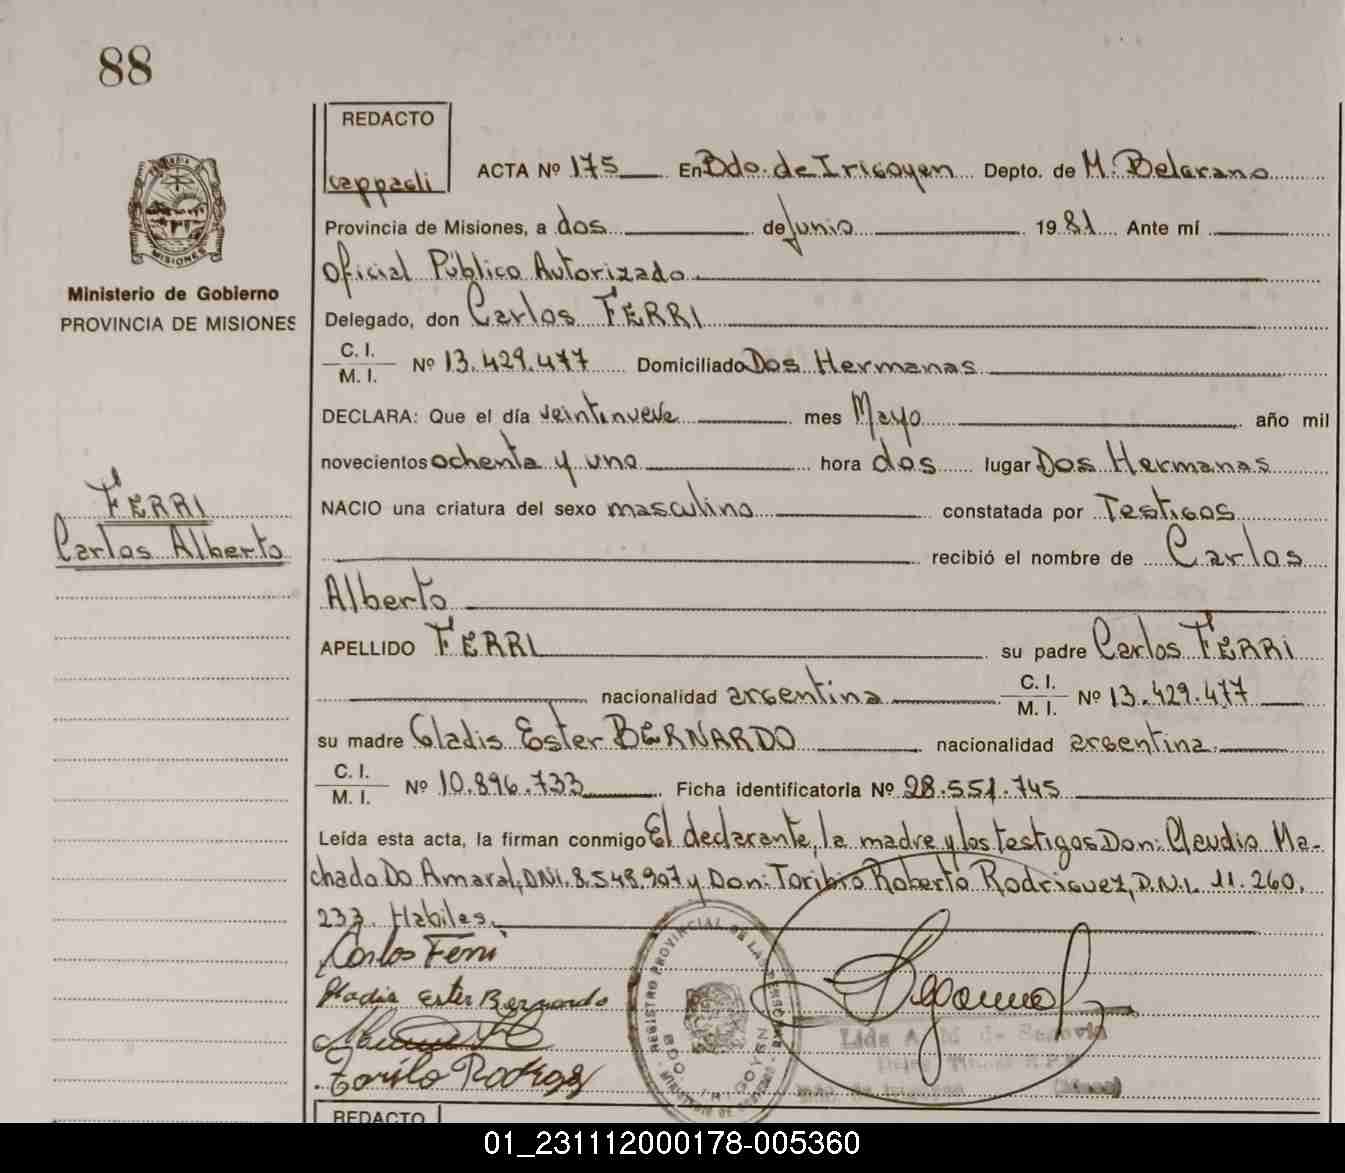 88
REDACTO
cappaeli
ACTA Nº 175 En Bdo. de Irigoyen Depto. de M. Belgrano
Provincia de Misiones, a dos de Junio 1981 Ante mí
Oficial Público Autorizado
Delegado, don Carlos FERRI
C. I.
M. I. Nº 13.429.477 Domiciliado Dos Hermanas
DECLARA: Que el día veintinueve mes Mayo año mil
novecientos ochenta y uno hora dos lugar Dos Hermanas
NACIO una criatura del sexo masculino constatada por Testigos
recibió el nombre de Carlos
Alberto
APELLIDO FERRI su padre Carlos FERRI
nacionalidad argentina C. I.
M. I. Nº 13.429.477
su madre Gladis Ester BERNARDO nacionalidad argentina
C. I.
M. I. Nº 10.896.733 Ficha identificatoria Nº 28.551.745
Leída esta acta, la firman conmigo El declarante, la madre y los testigos Don: Claudio Ma-
chado Do Amaral, DNI. 8.548.907 y Don: Toribio Roberto Rodriguez, D.N.I. 11.260.
233. Habiles.
Carlos Ferri
Gladis Ester Bernardo
Rodrigez
REGISTRO PROVINCIAL DE LAS PERSONAS
BDO. IRIGOYEN
Lida A. M. de Segovia
REDACTO
MISIONES
Ministerio de Gobierno
PROVINCIA DE MISIONES
FERRI
Carlos Alberto
01_231112000178-005360